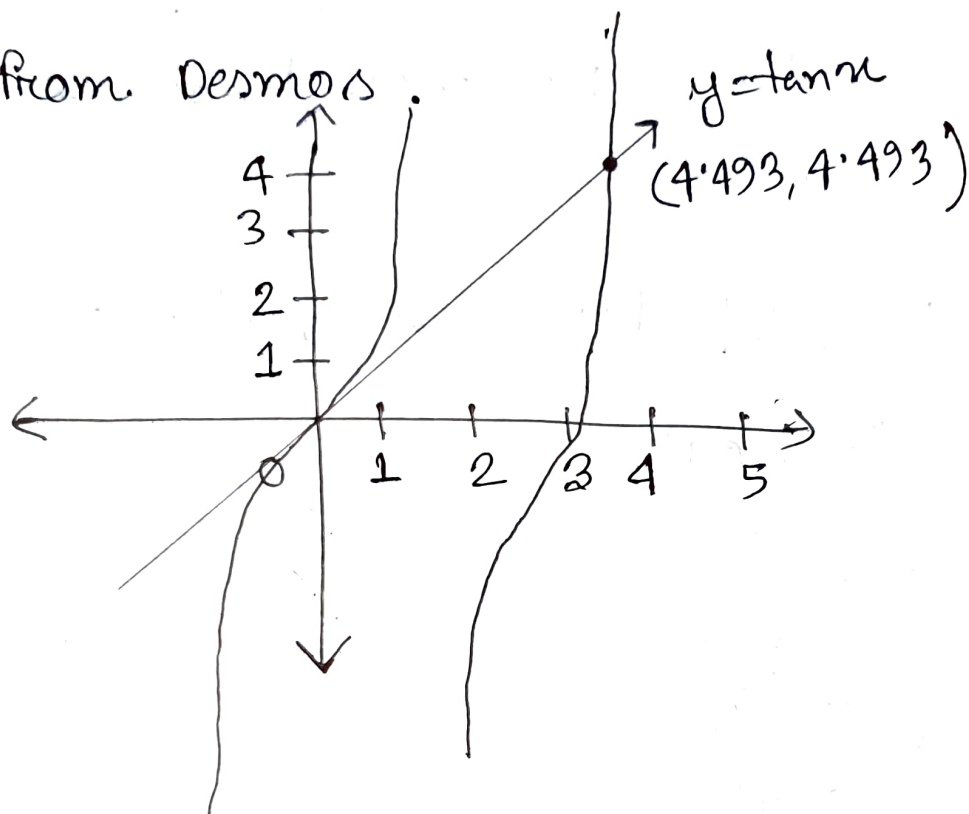 from Desmos.
y=tanx
(4.493, 4.493)
4
3
2
1
O
1 2 3 4 5